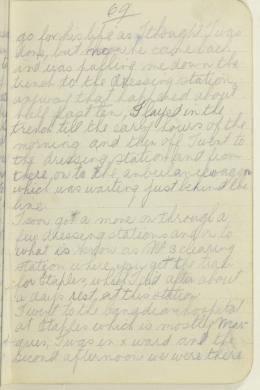 69
go for his life as I thought I was
done, but no one came back,
and was pulling me down the
trench to the dressing station
anyway that happened about
half past ten, I layed in the
trench till the early hours of the
morning and then off I went to
the dressing station and from
there, on to the ambulance wagon
which was waiting just behind the
line.
I soon got a move on through a
few dressing stations and on to
what is known as No 3 clearing
station where you get the train
for Etaples, which I did after about
a days rest, at this station
I went to the hospital
at Etaples which is mostly Mar-
quees, I was in x ward and the
second afternoon we were there